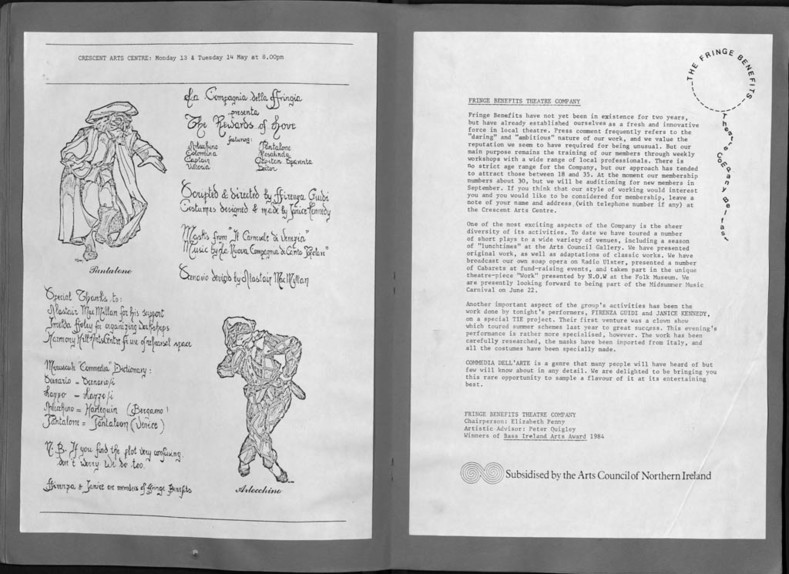 CRESCENT ARTS CENTRE: Monday 13 & Tuesday 14 May at 8.00pm
La Compagnia della ffringia
presenta
The Rewards of Love
featuring:
Arlecchino Pantalone
Colombina Rosalinda
Captain
Vittoria
Scripted & directed by ffirenza Guidi
Costumes designed & made by Janice Kennedy
Masks from "Il Carnevale di Venezia"
Music by "La Nuova Compagnia di Canto Popolare"
Scenario design by Alastair MacMillan
Pantalone
Special Thanks to:
Alastair MacMillan for his support
Imelda Foley for organizing workshops
Harmony Hill Arts Centre for use of rehearsal space
"Commedia" Dictionary:
Scenario = Scenario/i
Lazzo = Lazzo/i
Arlecchino = Harlequin (Bergamo)
Pantalone = Pantaloon (Venice)
N.B. If you find the plot very confusing
don't worry. We do too.
ffirenza & Janice are members of Fringe Benefits
Arlecchino
THE FRINGE BENEFITS
Theatre Company Belfast
FRINGE BENEFITS THEATRE COMPANY
Fringe Benefits have not yet been in existence for two years,
but have already established ourselves as a fresh and innovative
force in local theatre. Press comment frequently refers to the
"daring" and "ambitious" nature of our work, and we value the
reputation we seem to have required for being unusual. But our
main purpose remains the training of our members through weekly
workshops with a wide range of local professionals. There is
no strict age range for the Company, but our approach has tended
to attract those between 18 and 35. At the moment our membership
numbers about 30, but we will be auditioning for new members in
September. If you think that our style of working would interest
you and you would like to be considered for membership, leave a
note of your name and address (with telephone number if any) at
the Crescent Arts Centre.
One of the most exciting aspects of the Company is the sheer
diversity of its activities. To date we have toured a number
of short plays to a wide variety of venues, including a season
of "lunchtimes" at the Arts Council Gallery. We have presented
original work, as well as adaptations of classic works. We have
broadcast our own soap opera on Radio Ulster, presented a number
of Cabarets at fund-raising events, and taken part in the unique
theatre-piece "Work" presented by N.O.W at the Folk Museum. We
are presently looking forward to being part of the Midsummer Music
Carnival on June 22.
Another important aspect of the group's activities has been the
work done by tonight's performers, FIRENZA GUIDI and JANICE KENNEDY,
on a special TIE project. Their first venture was a clown show
which toured summer schemes last year to great success. This evening's
performance is rather more specialised, however. The work has been
carefully researched, the masks have been imported from Italy, and
all the costumes have been specially made.
COMMEDIA DELL'ARTE is a genre that many people will have heard of but
few will know about in any detail. We are delighted to be bringing you
this rare opportunity to sample a flavour of it at its entertaining
best.
FRINGE BENEFITS THEATRE COMPANY
Chairperson: Elizabeth Penny
Artistic Advisor: Peter Quigley
Winners of Bass Ireland Arts Award 1984
Subsidised by the Arts Council of Northern Ireland